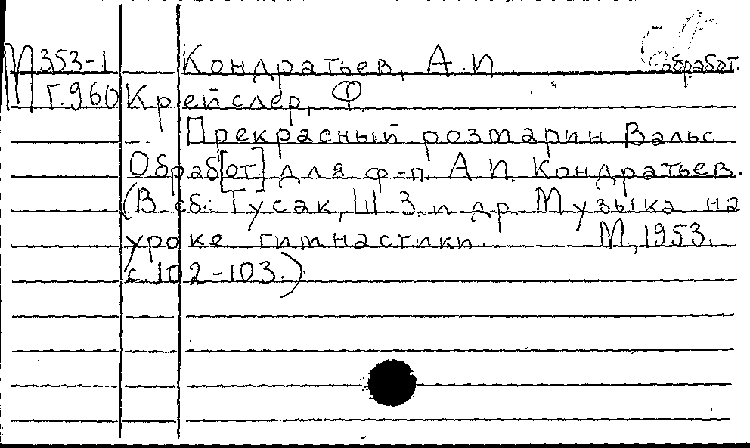 М 353-1 Кондратьев, А.П. обработ.
Г.960 Крейслер, Ф.
Прекрасный розмарин Вальс
Обраб[от] для ф-п. А.П. Кондратьев.
(В сб: Гусак, Ш.З. и др. Музыка на
уроке гимнастики. М, 1953.
с. 102-103.)